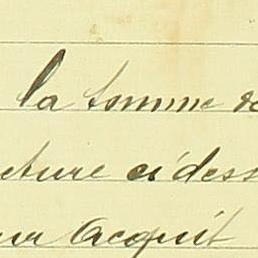 la somme de
cture ci dess
ur Acquit